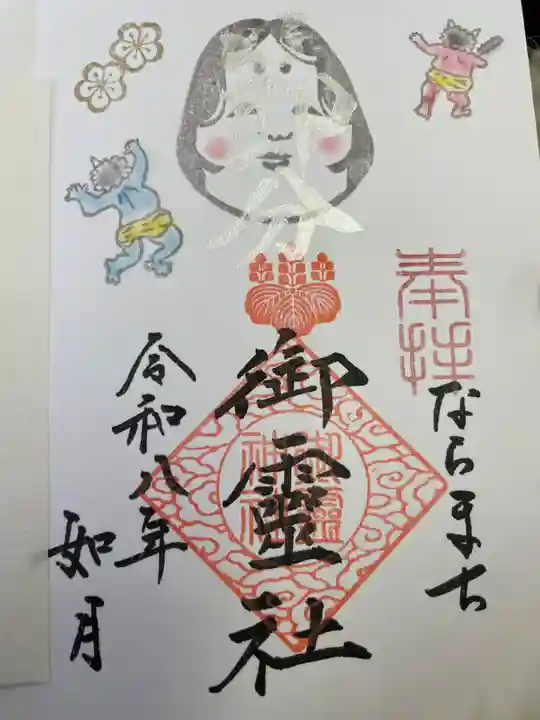 奉拝
ならまち
節分
御霊神社
御靈社
令和八年
如月